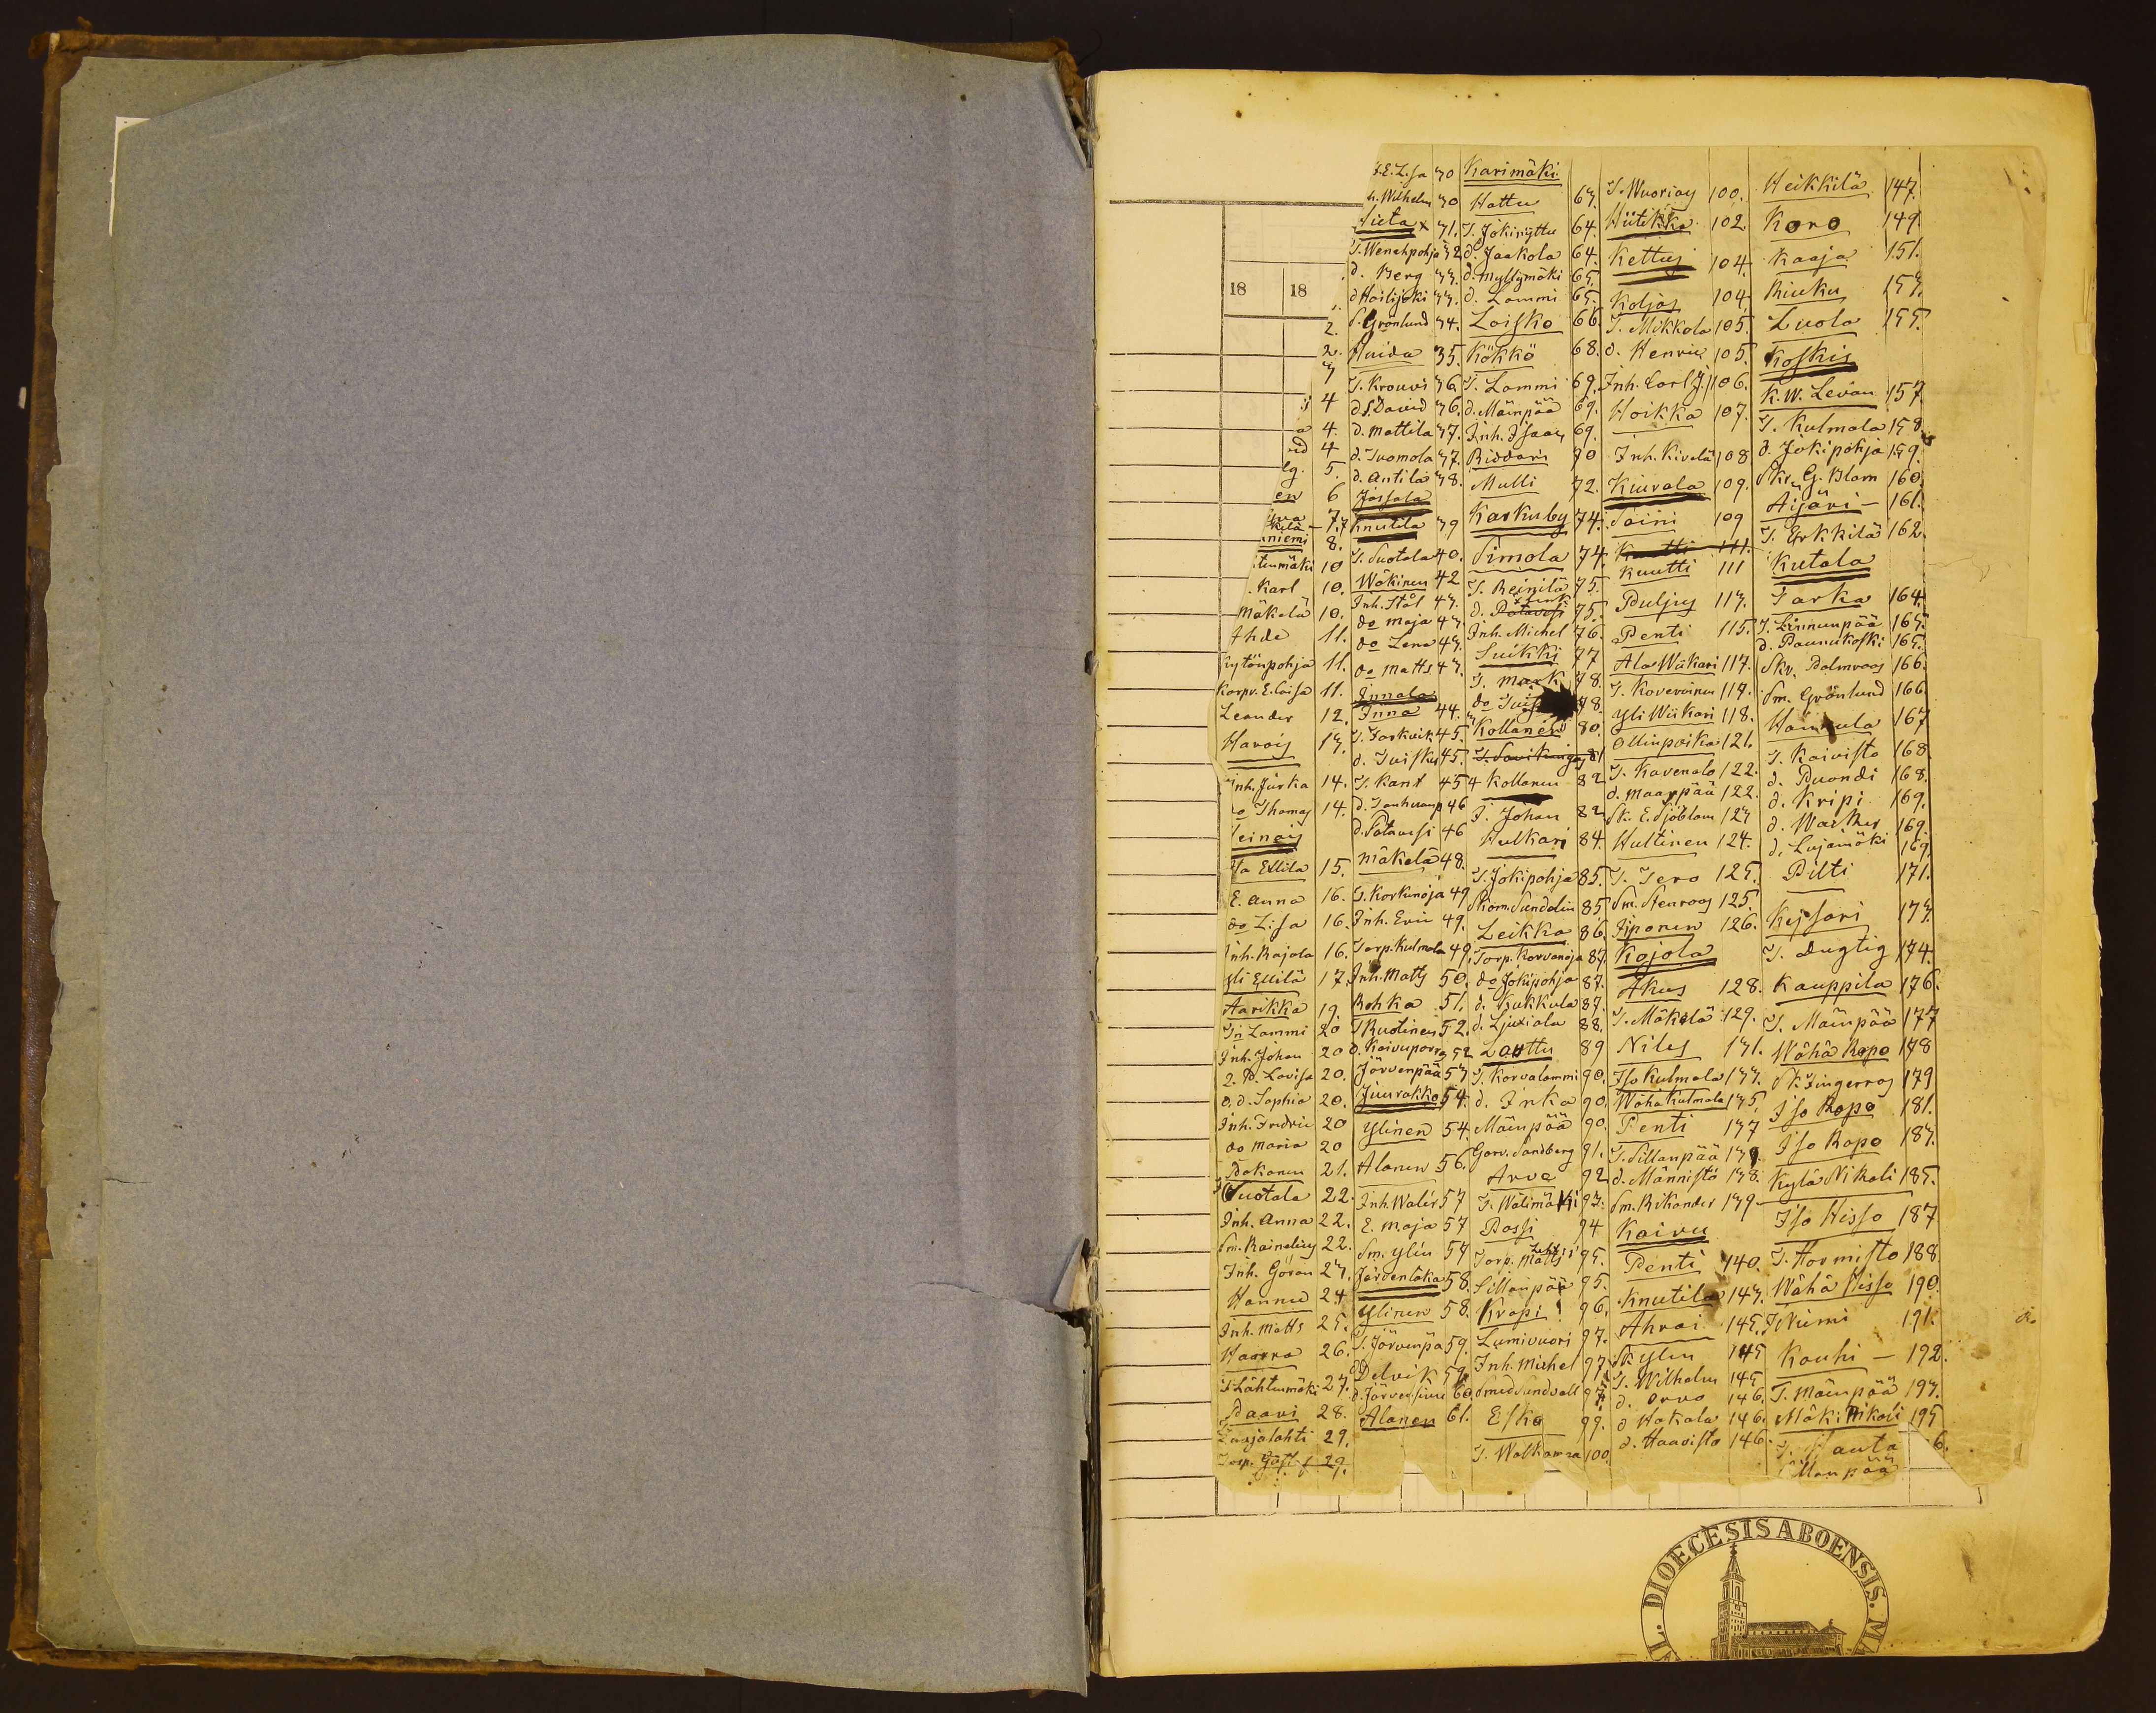 18 18
2.
2.
4
4.
4
lg. 5.
en 6
7.
niemi 8.
tenmäki 10
Karl 10.
Mäkelä 10.
Ihde 11.
Kytönpohja 11.
Korpv. E. Loisa 11.
Leander 12.
Havois 13.
Inh. Jurka 14.
do Thomas 14.
Heinois
Ala Ellila 15.
E. Anna 16.
do Lisa 16.
Inh. Rajala 16.
Yli Ellilä 17.
Aarikka 19.
Tn Lammi 20
Inh. Johan 20
2. D. Lovisa 20.
o. d. Sophia 20.
Inh. Fredric 20
do Maria 20
Pakanen 21.
Suotala 22.
Inh. Anna 22.
Sm. 22.
Inh. Göran 23.
Hannu 24
Inh. Matts 25.
Haarra 26.
T. Lähteenmäki 27.
Paavi 28.
29.
Torp. 29.
E. Lisa 30
h. Wilhelm 30
Hieta x 31.
T. Wenehpohja 32
d. Berg 33.
d. Hoilijoki 33.
S. Grönlund 34.
Huida 35.
T. Krouvi 36
d. S. David 36.
d. Mattila 37.
d. Tuomola 37.
d. Antila 38.
Jossala
Knutila 39
T. Suotala 40.
Wäkinen 42
Inh. Stål 43.
do Maja 43.
do Lena 43.
do Matts 43.
Innala
Inna 44.
T. Forkvik 45.
d. Tuisku 45.
T. Kant 45
d. 46
d. Patavesi 46
Mäkelä 48.
T. Korkiuoja 49
Inh. Eric 49.
Torp. Kulmala 49.
Inh. Matts 50.
Rohka 51.
T. Ruotinen 52.
d. 52
Järvenpää 53
Juurakko 54.
Ylinen 54.
Alanen 56.
Inh. Walér 57
E. Maja 57
Sm. Ylén 57
Järvenlaka 58.
Ylinen 58.
T. Järvenpä 59.
Delvik 59
d. Järvensivu 60.
Alanen 61.
Karimäki
Hattu 63.
T. Jokiryttu 64.
d. Jaakola 64.
d. Myllymäki 65.
d. Lammi 65.
Loisko 66.
Kökkö 68.
T. Lammi 69.
d. Mäinpää 69.
Inh. Isaac 69.
Riddari 70
Mulli 72.
Karkuby 74.
Simola 74.
T. Reinilä 75.
d. Patavesi 75.
Inh. Michel 76.
Suikki 77
T. Mark 78.
do 78.
Kollanen 80.
T. Savikangas 81
Kollanen 82
T. Johan 82
Hulkari 84.
T. Jokipohja 85.
Skom. Sundelin 85
Leikka 86.
Torp. Korvanoja 87.
do Jokipohja 87.
d. Kukkula 87.
d. 88.
Lauttu 89
T. Korvalammi 90.
d. Inka 90.
Mäinpää 90.
Garv. Sandberg 91.
Arve 92
T. Wälimäki 93.
Passi 94
Torp. Matts 95.
Sillanpää 95.
Krapi 96.
Lumivuori 97.
Inh. Michel 97.
Smed Sundvall 97.
Esko 99.
T. Walkamaa 100.
T. Wuorio 100.
Hiitikko 102
Kettus 104.
Koljas 104.
T. Mikkola 105.
d. Henric 105.
Inh. Carl J. 106.
Hoikka 107.
Inh. Kivelä 108
Kiurala 109.
Soini 109
Knutti 111.
Kuutti 111
Puljus 113.
Penti 115.
Ala Wiikari 117.
T. Koveroinen 117.
Yli Wiikari 118.
Ollinpoika 121.
T. Kavenalo 122.
d. Maanpää 122.
Sk. E. Sjöblom 123
Hultinen 124.
T. Tero 125.
Sm. Stenroos 125.
Iiponen 126.
Kojola
Akus 128.
T. Mäkelä 129.
Niles 131.
Iso Kulmala 133.
Wähä Kulmala 135.
Penti 137
T. Sillanpää 138.
d. Männistö 138.
Sm. Rikander 139
Kaivu
Penti 140.
Knutila 143.
Ahroi 145.
Sk. Ylen 145
T. Wilhelm 145
d. Orvo 146.
d. Hakala 146.
d. Haavisto 146.
Heikkilä 147.
Koro 149.
Kaaja 151.
Riuku 153.
Luola 155.
Koskis
K. W. Levan 157
T. Kulmala 158
d. Jokipohja 159
Skr. G. Blom 160.
Äijäri — 161.
T. Erkkilä 162.
Kutala
Jarka 164.
T. Linnunpää 165.
d. Paunukoski 165.
Skr. Palmroos 166.
Sm. Grönlund 166
Hannula 167
T. Koivisto 168
d. Puondi 168.
d. Kripi 169.
d. 169.
d. Lajamäki 169.
Pilti 171.
Kejsari 173.
T. Dugtig 174.
Kauppila 176.
T. Mäinpää 177
Wähä Ropo 178
Sk. Fingerroos 179
Iso Ropo 181.
Iso Ropo 183.
Kylä Nikoli 185.
Iso Hisso 187
T. Hormisto 188
Wähä Hisso 190.
T. Niemi 191.
Kouhi — 192.
T. Mäinpää 193.
Mäki Nikoli 195
T. Hauta 6.
Sillanpää
AL. DIOECESIS ABOENSIS. MA